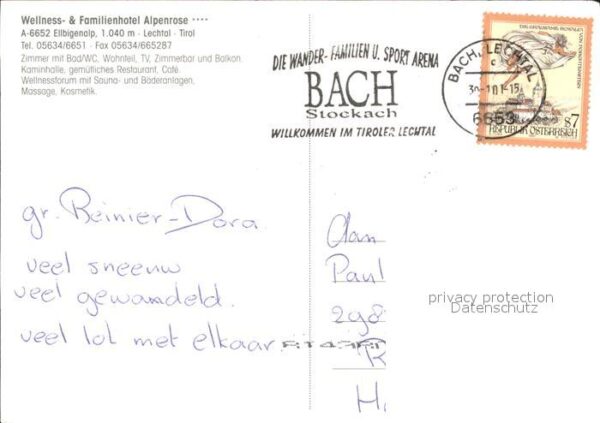 Wellness- & Familienhotel Alpenrose ····
A-6652 Ellbigenalp, 1.040 m · Lechtal · Tirol
Tel. 05634/6651 · Fax 05634/665287
Zimmer mit Bad/WC, Wohnteil, TV, Zimmerbar und Balkon.
Kaminhalle, gemütliches Restaurant, Café.
Wellnessforum mit Sauna- und Badeanlagen,
Massage, Kosmetik.
DIE WANDER- FAMILIEN U. SPORT ARENA
BACH
Stockach
WILLKOMMEN IM TIROLER LECHTAL
BACH, LECHTAL
6653
REPUBLIK ÖSTERREICH
S7
gr. Reinier-Dora.
veel sneeuw
veel gewandeld.
veel lol met elkaar.
Aan
Paul
298
privacy protection
Datenschutz
R
H